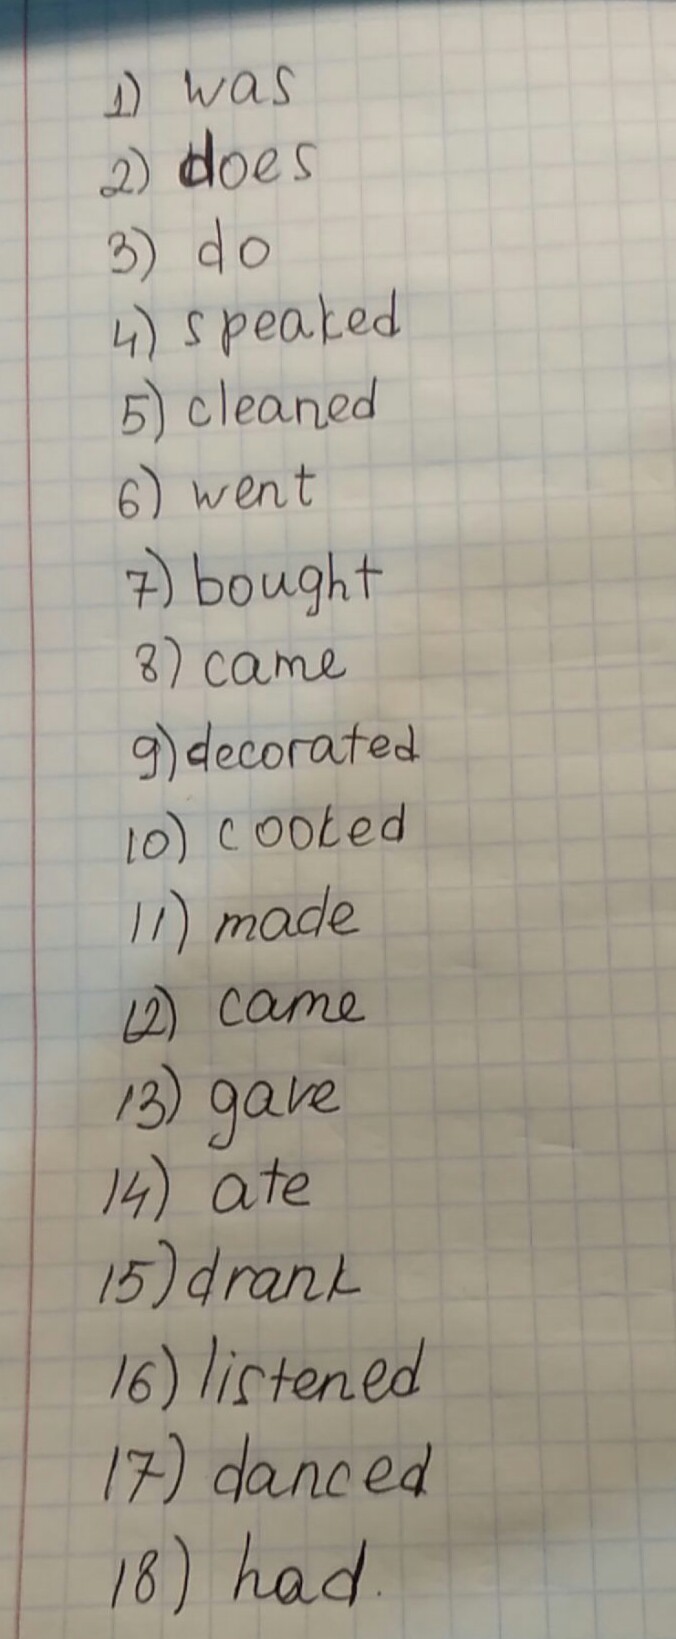 1) was
2) does
3) do
4) speaked
5) cleaned
6) went
7) bought
8) came
9) decorated
10) cooked
11) made
12) came
13) gave
14) ate
15) drank
16) listened
17) danced
18) had.